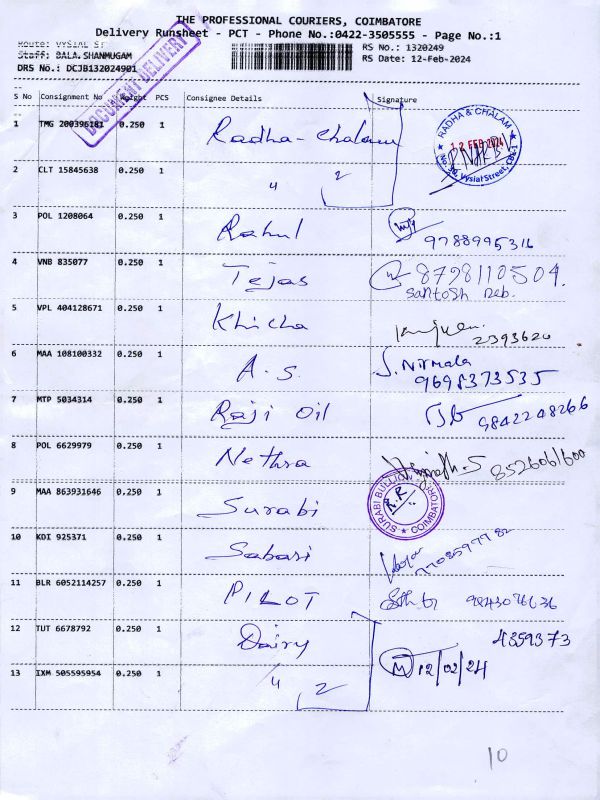 THE PROFESSIONAL COURIERS, COIMBATORE
Delivery Runsheet - PCT - Phone No.:0422-3505555 - Page No.:1
Route: VYSIAL ST
RS No.: 1320249
Staff: BALA.SHANMUGAM
RS Date: 12-Feb-2024
DRS No.: DCJB132024901
DOCUMENT DELIVERY
S No Consignment No Weight PCS Consignee Details Signature
1 TMG 200396181 0.250 1 Radha-Chalam
RADHA & CHALAM
12 FEB 2024
No. 30, Vysial Street, CBE-1
2 CLT 15845638 0.250 1 " 2
3 POL 1208064 0.250 1 Rahul 9788995316
4 VNB 835077 0.250 1 Tejas 8798110504.
Santosh Deb.
5 VPL 404128671 0.250 1 Khicha
2393620
6 MAA 108100332 0.250 1 A.S. S. Nirmala
9698373535
7 MTP 5034314 0.250 1 Raji Oil 9842248266
8 POL 6629979 0.250 1 Nethra 8526061600
9 MAA 863931646 0.250 1 Surabi R.R
SURABI BULLION COIMBATORE
10 KDI 925371 0.250 1 Sabari
11 BLR 6052114257 0.250 1 PILOT
12 TUT 6678792 0.250 1 Dairy 4359373
M 12/02/24
13 IXM 505595954 0.250 1 " 2
10